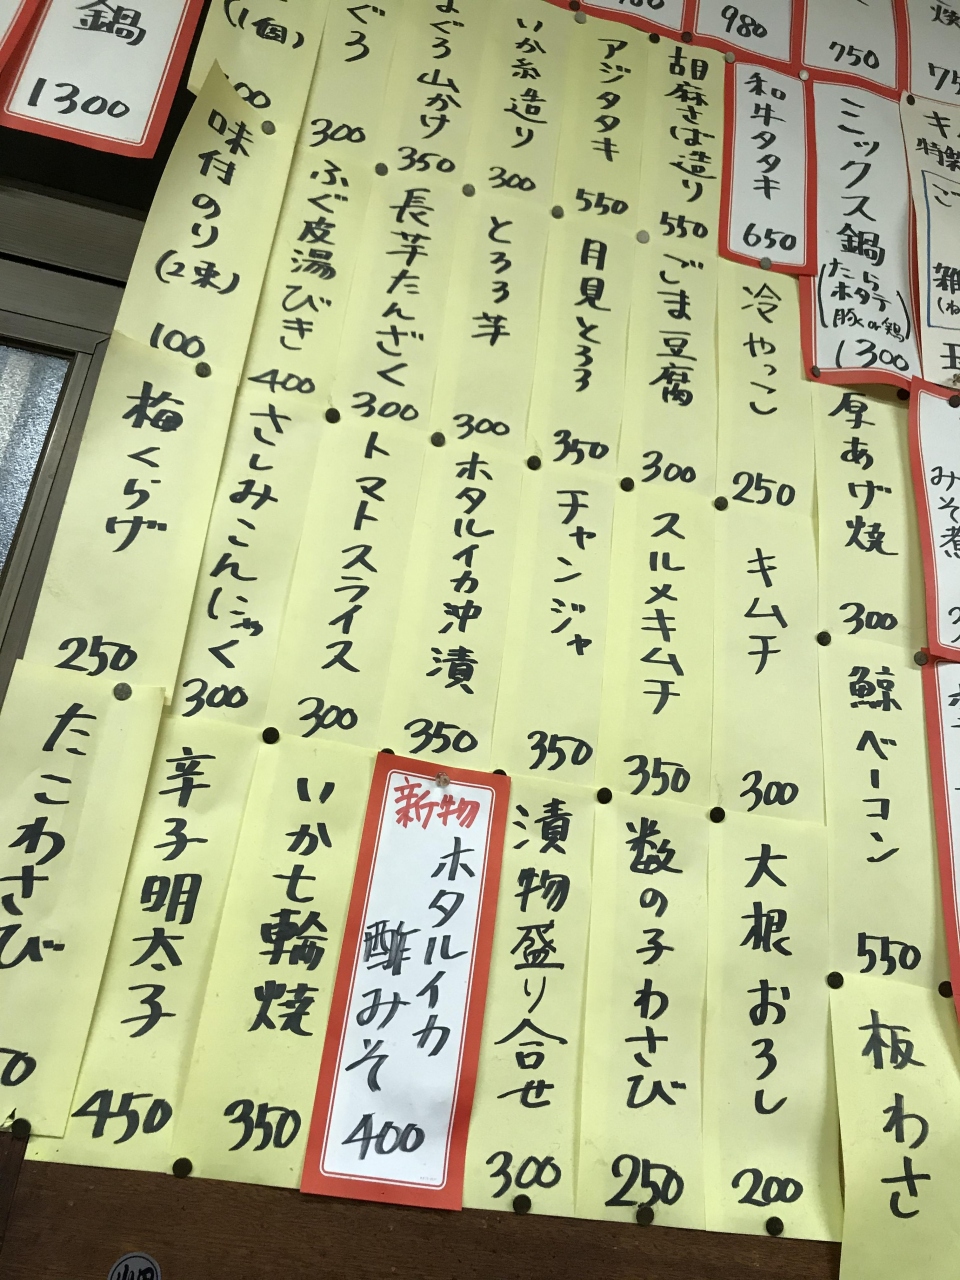 980
750
和牛タタキ
650
ミックス鍋
(たら
ホタテ
豚or鶏)
1300
鍋
1300
胡麻さば造り
550
アジタタキ
550
いか糸造り
300
まぐろ山かけ
350
300
(1個)
冷やっこ
250
ごま豆腐
300
月見とろろ
350
とろろ芋
300
長芋たんざく
300
ふぐ皮湯びき
400
味付のり
(2束)
100
厚あげ焼
300
キムチ
300
スルメキムチ
350
チャンジャ
350
ホタルイカ沖漬
350
トマトスライス
300
さしみこんにゃく
300
梅くらげ
250
鯨ベーコン
550
大根おろし
200
数の子わさび
250
漬物盛り合せ
300
新物
ホタルイカ
酢みそ
400
いか七輪焼
350
辛子明太子
450
たこわさび
板わさ